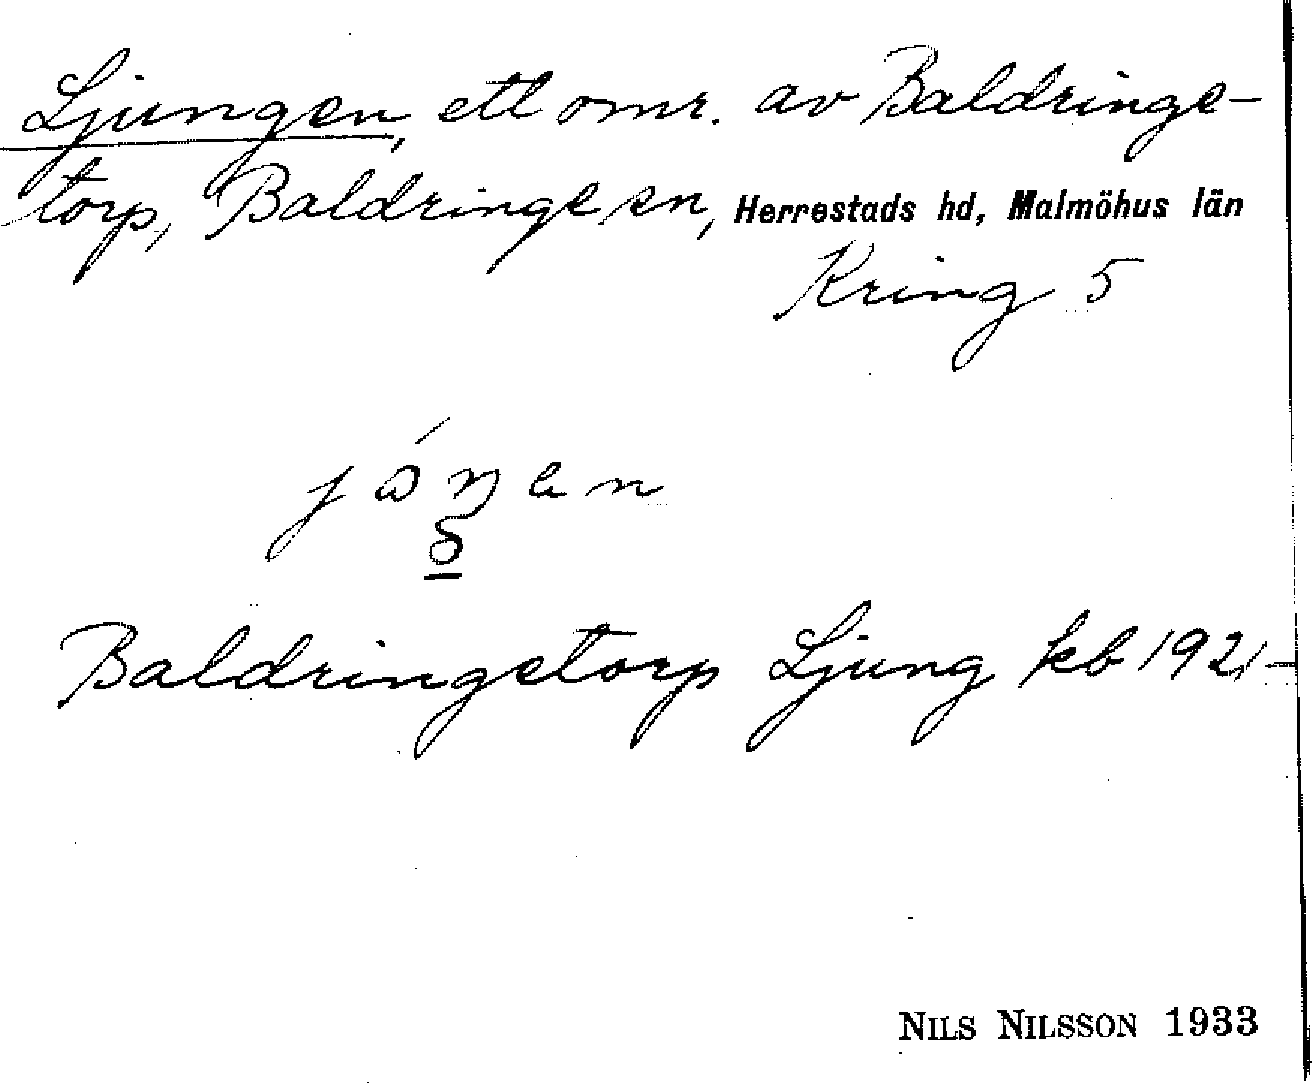 Ljungen, ett omr. av Baldringe-
torp, Baldringe sn, Herrestads hd, Malmöhus län
Kring 5
Baldringetorp Ljung kb 1921–
NILS NILSSON 1933